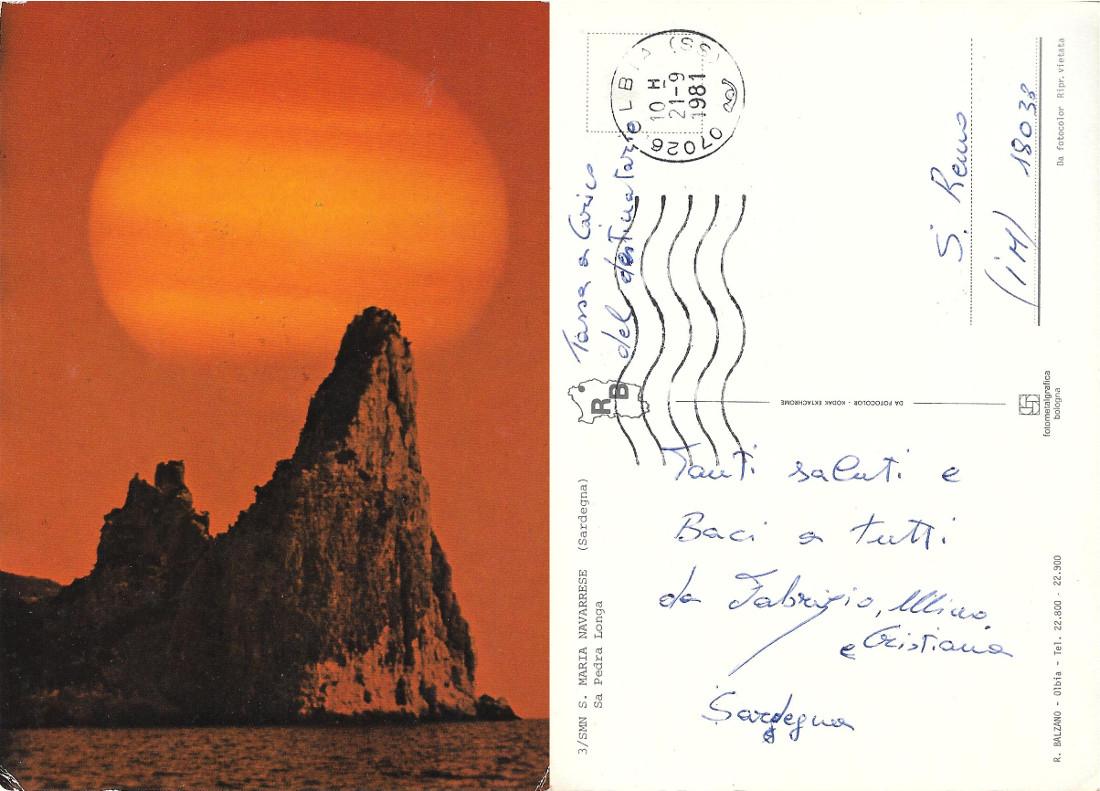 07026 OLBIA (SS)
10 H
21-9
1981
Tassa a Carico
del destinatario
S. Remo
(IM) 18038
Da fotocolor Ripr. vietata
RB
DA FOTOCOLOR - KODAK EKTACHROME
fotometalgrafica
bologna
3/SMN S. MARIA NAVARRESE (Sardegna)
Sa Pedra Longa
Tanti saluti e
Baci a tutti
da Fabrizio, Mino
e Cristiana
Sardegna
R. BALZANO - Olbia - Tel. 22.800 - 22.900